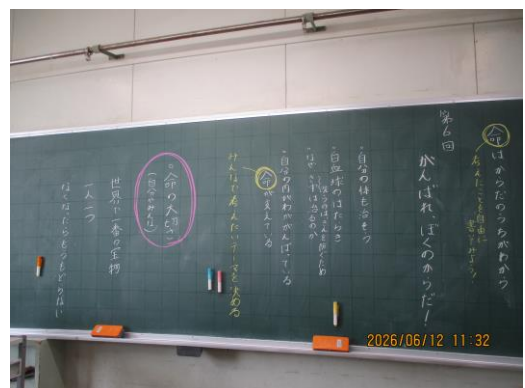 命はからだのうちがわから
考えたことを自由に
書いてみよう!
第6回
がんばれ、ぼくのからだ!
・自分の体も治そう
・白血球のはたらき
・なぜ
・自分の内がわががんばっている
命が支えている
みんなで考えたいテーマを決める
・命の大切さ
世界で一番の宝物
一人一つ
なくなったらもうもどらない
2026/06/12 11:32